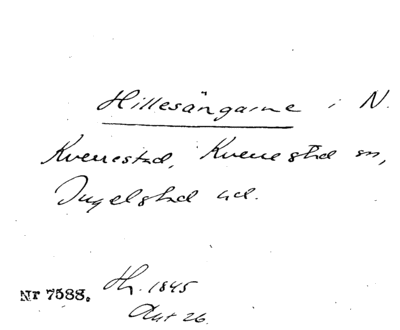 Hillesängarne i N.
Kverrestad, Kverrestad sn,
Ingelstad hd.
Nr 7588. Th. 1845
Akt 26.